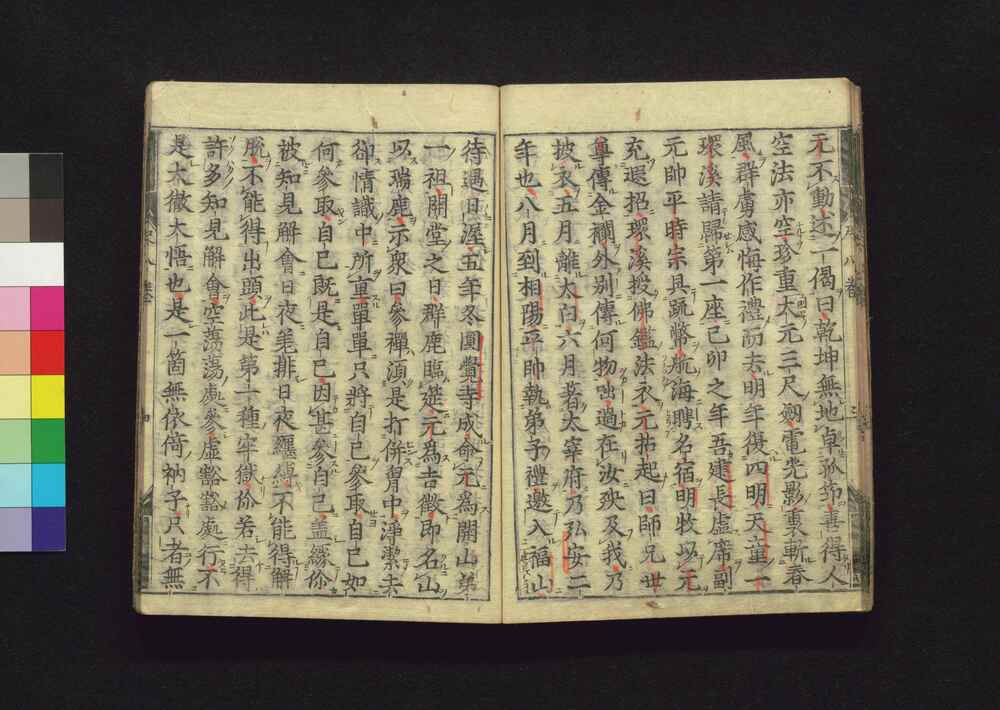 元不動述一偈曰乾坤無地卓孤筇喜得人
空法亦空珍重大元三尺劔電光影裏斬春
風群虜感悔作禮而去明年復四明天童一
環溪請歸第一座己卯之年吾建長虛席副
元帥平時宗具䟽幣航海聘名宿明牧以元
充選招環溪授佛鑑法衣元拈起曰師兄世
尊傳金襴外別傳何物咄過在汝殃及我乃
披衣五月離太白六月著太宰府乃弘安二
年也八月到相陽平帥執弟子禮邀入福山
待遇日渥五年冬圓覺寺成命元為開山第
一祖開堂之日群鹿臨筵元為吉徵即名山
以瑞鹿示衆曰參禪須是打併胷中淨潔去
卻情識中所重單單只將自己參取自己如
何參取自己既是自己因甚參自己盖纔你
被知見解會日夜羗排日夜纏縛不能得解
脫不能得出頭此是第一種牢獄你若去得
許多知見解會空蕩蕩處參虛豁豁處行不
是大徹大悟也是一箇無依倚衲子只者無